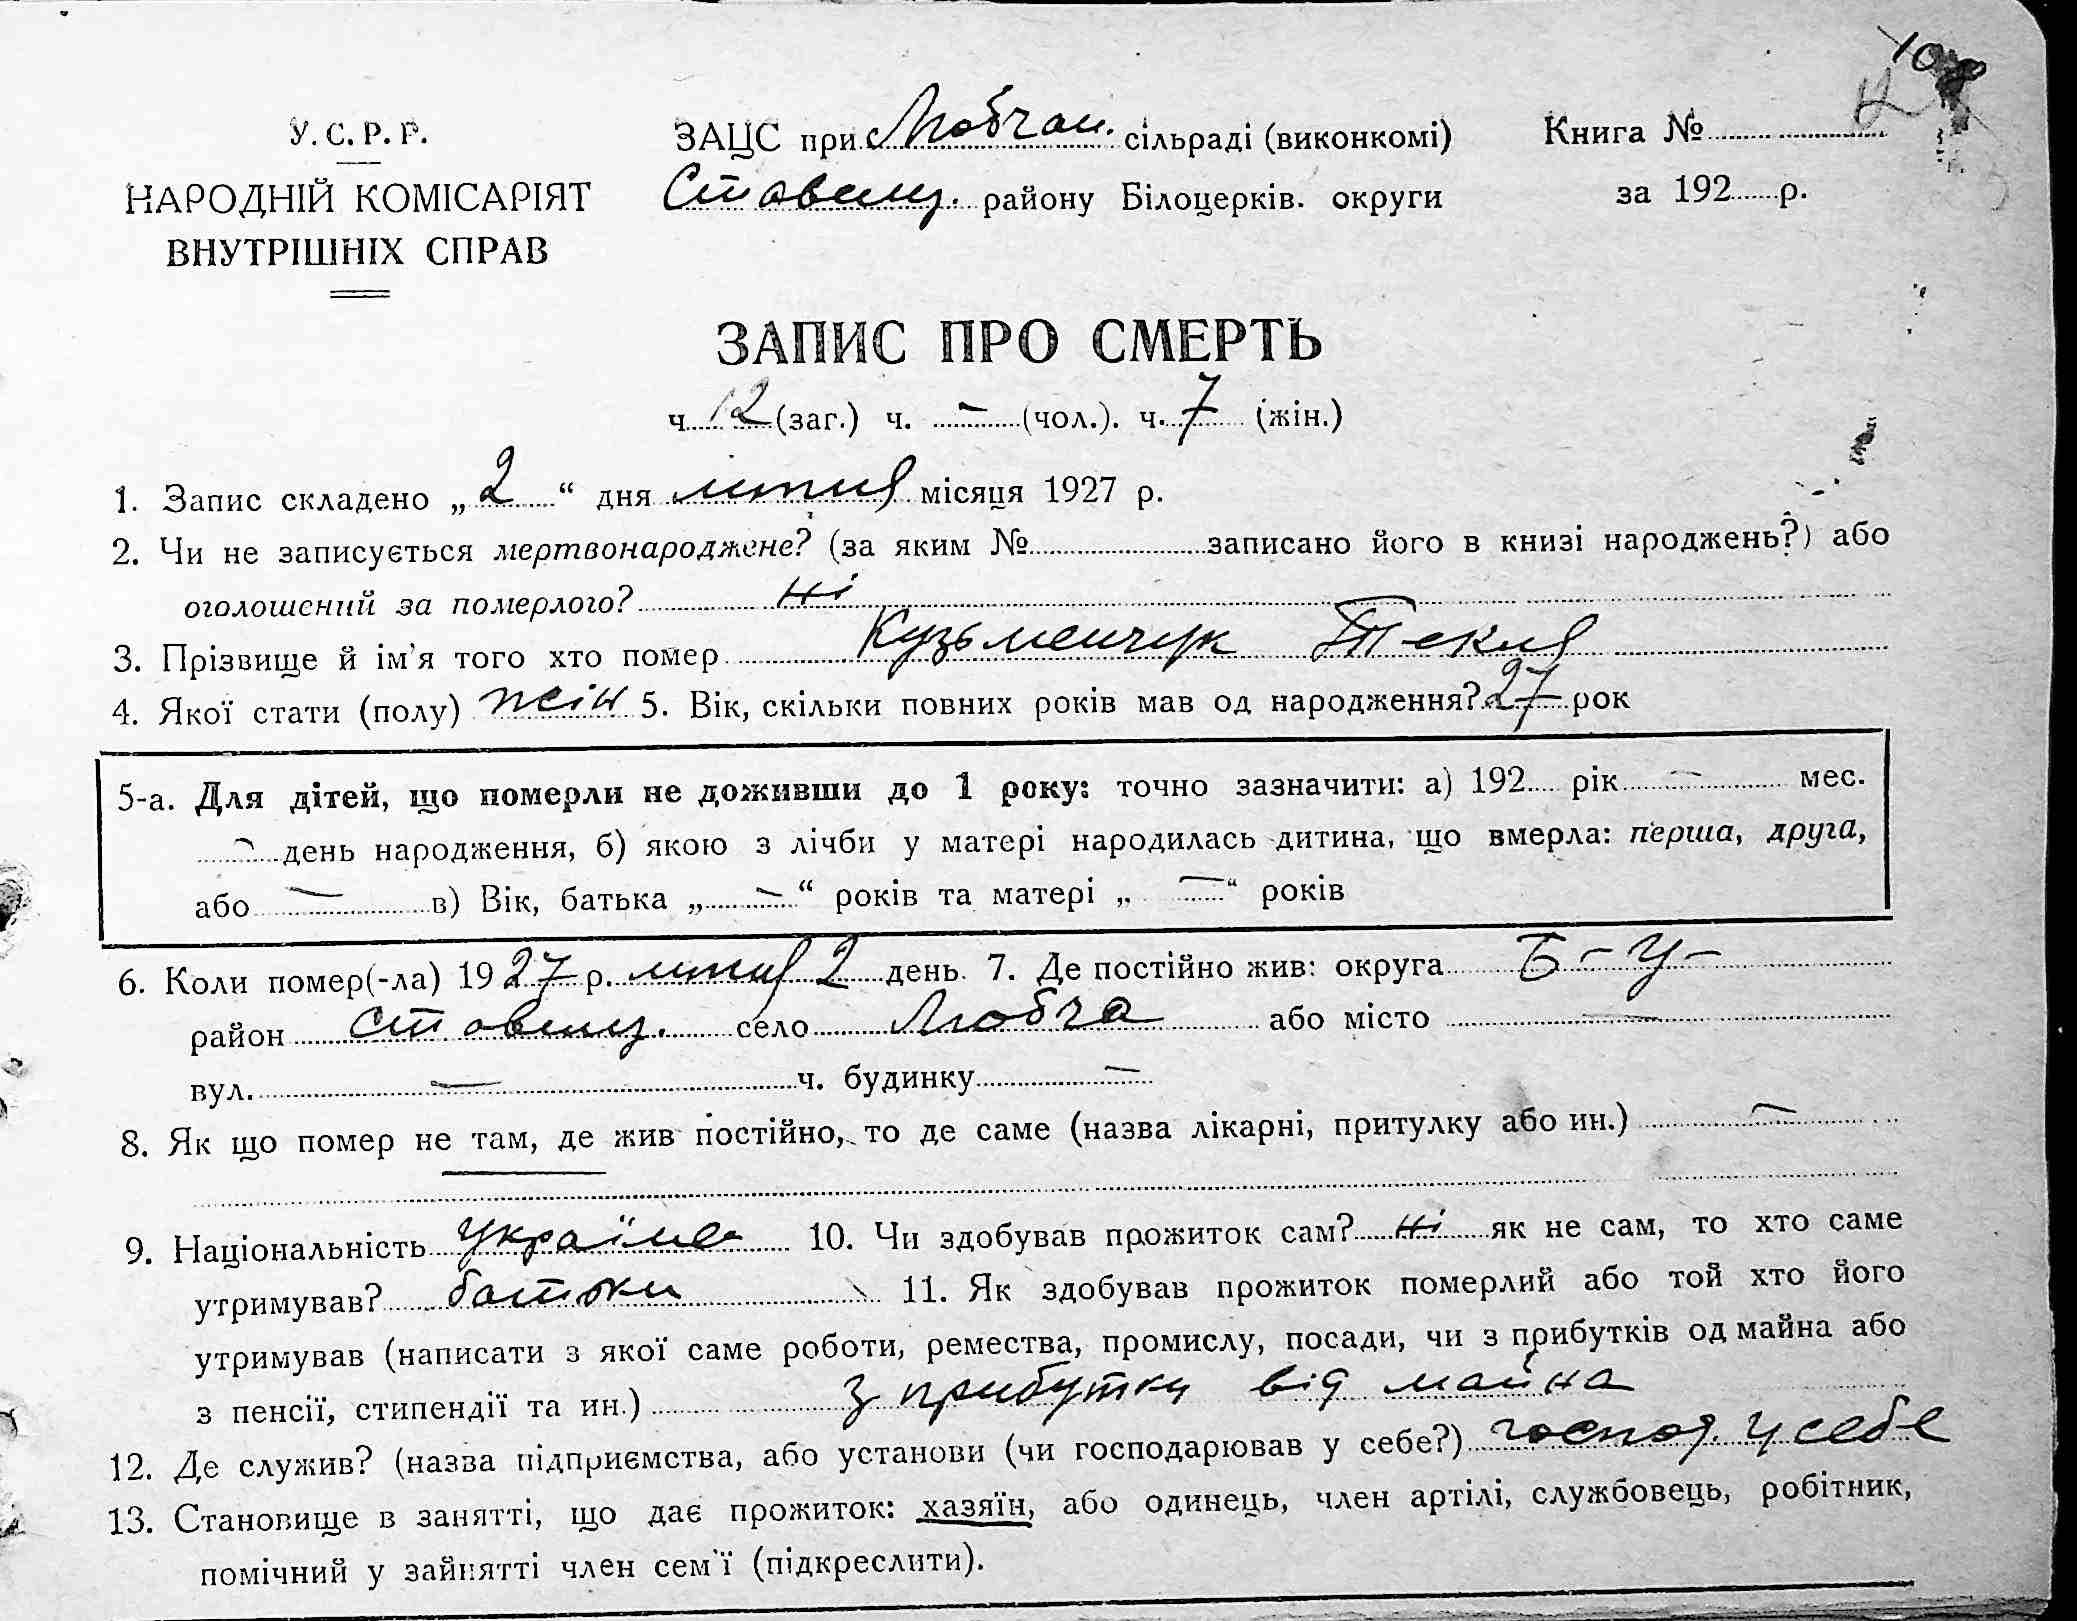 108
12
У. С. Р. Р.
НАРОДНІЙ КОМІСАРІЯТ
ВНУТРІШНІХ СПРАВ
ЗАЦС при Любчан. сільраді (виконкомі)
Ставищ. району Білоцерків. округи
Книга №
за 192 р.
ЗАПИС ПРО СМЕРТЬ
ч. 12 (заг.) ч. – (чол.). ч. 7 (жін.)
1. Запис складено „ 2 “ дня липня місяця 1927 р.
2. Чи не записується мертвонароджене? (за яким № записано його в книзі народжень?) або
оголошений за померлого? Ні
3. Прізвище й ім'я того хто помер Кузьменчук Текля
4. Якої стати (полу) жін 5. Вік, скільки повних років мав од народження? 27 рок
5-а. Для дітей, що померли не доживши до 1 року: точно зазначити: а) 192 рік – мес.
– день народження, б) якою з лічби у матері народилась дитина, що вмерла: перша, друга,
або – в) Вік, батька „ – “ років та матері „ – “ років
6. Коли помер(-ла) 1927 р. липня 2 день. 7. Де постійно жив: округа Б – Ц –
район Ставищ. село Любча або місто –
вул. – ч. будинку –
8. Як що помер не там, де жив постійно, то де саме (назва лікарні, притулку або ин.) –
9. Національність україн 10. Чи здобував прожиток сам? Ні як не сам, то хто саме
утримував? батьки 11. Як здобував прожиток померлий або той хто його
утримував (написати з якої саме роботи, ремества, промислу, посади, чи з прибутків од майна або
з пенсії, стипендії та ин.) З прибутку від майна
12. Де служив? (назва підприємства, або установи (чи господарював у себе?) господ. у себе
13. Становище в занятті, що дає прожиток: хазяїн, або одинець, член артілі, службовець, робітник,
помічний у зайнятті член сем'ї (підкреслити).